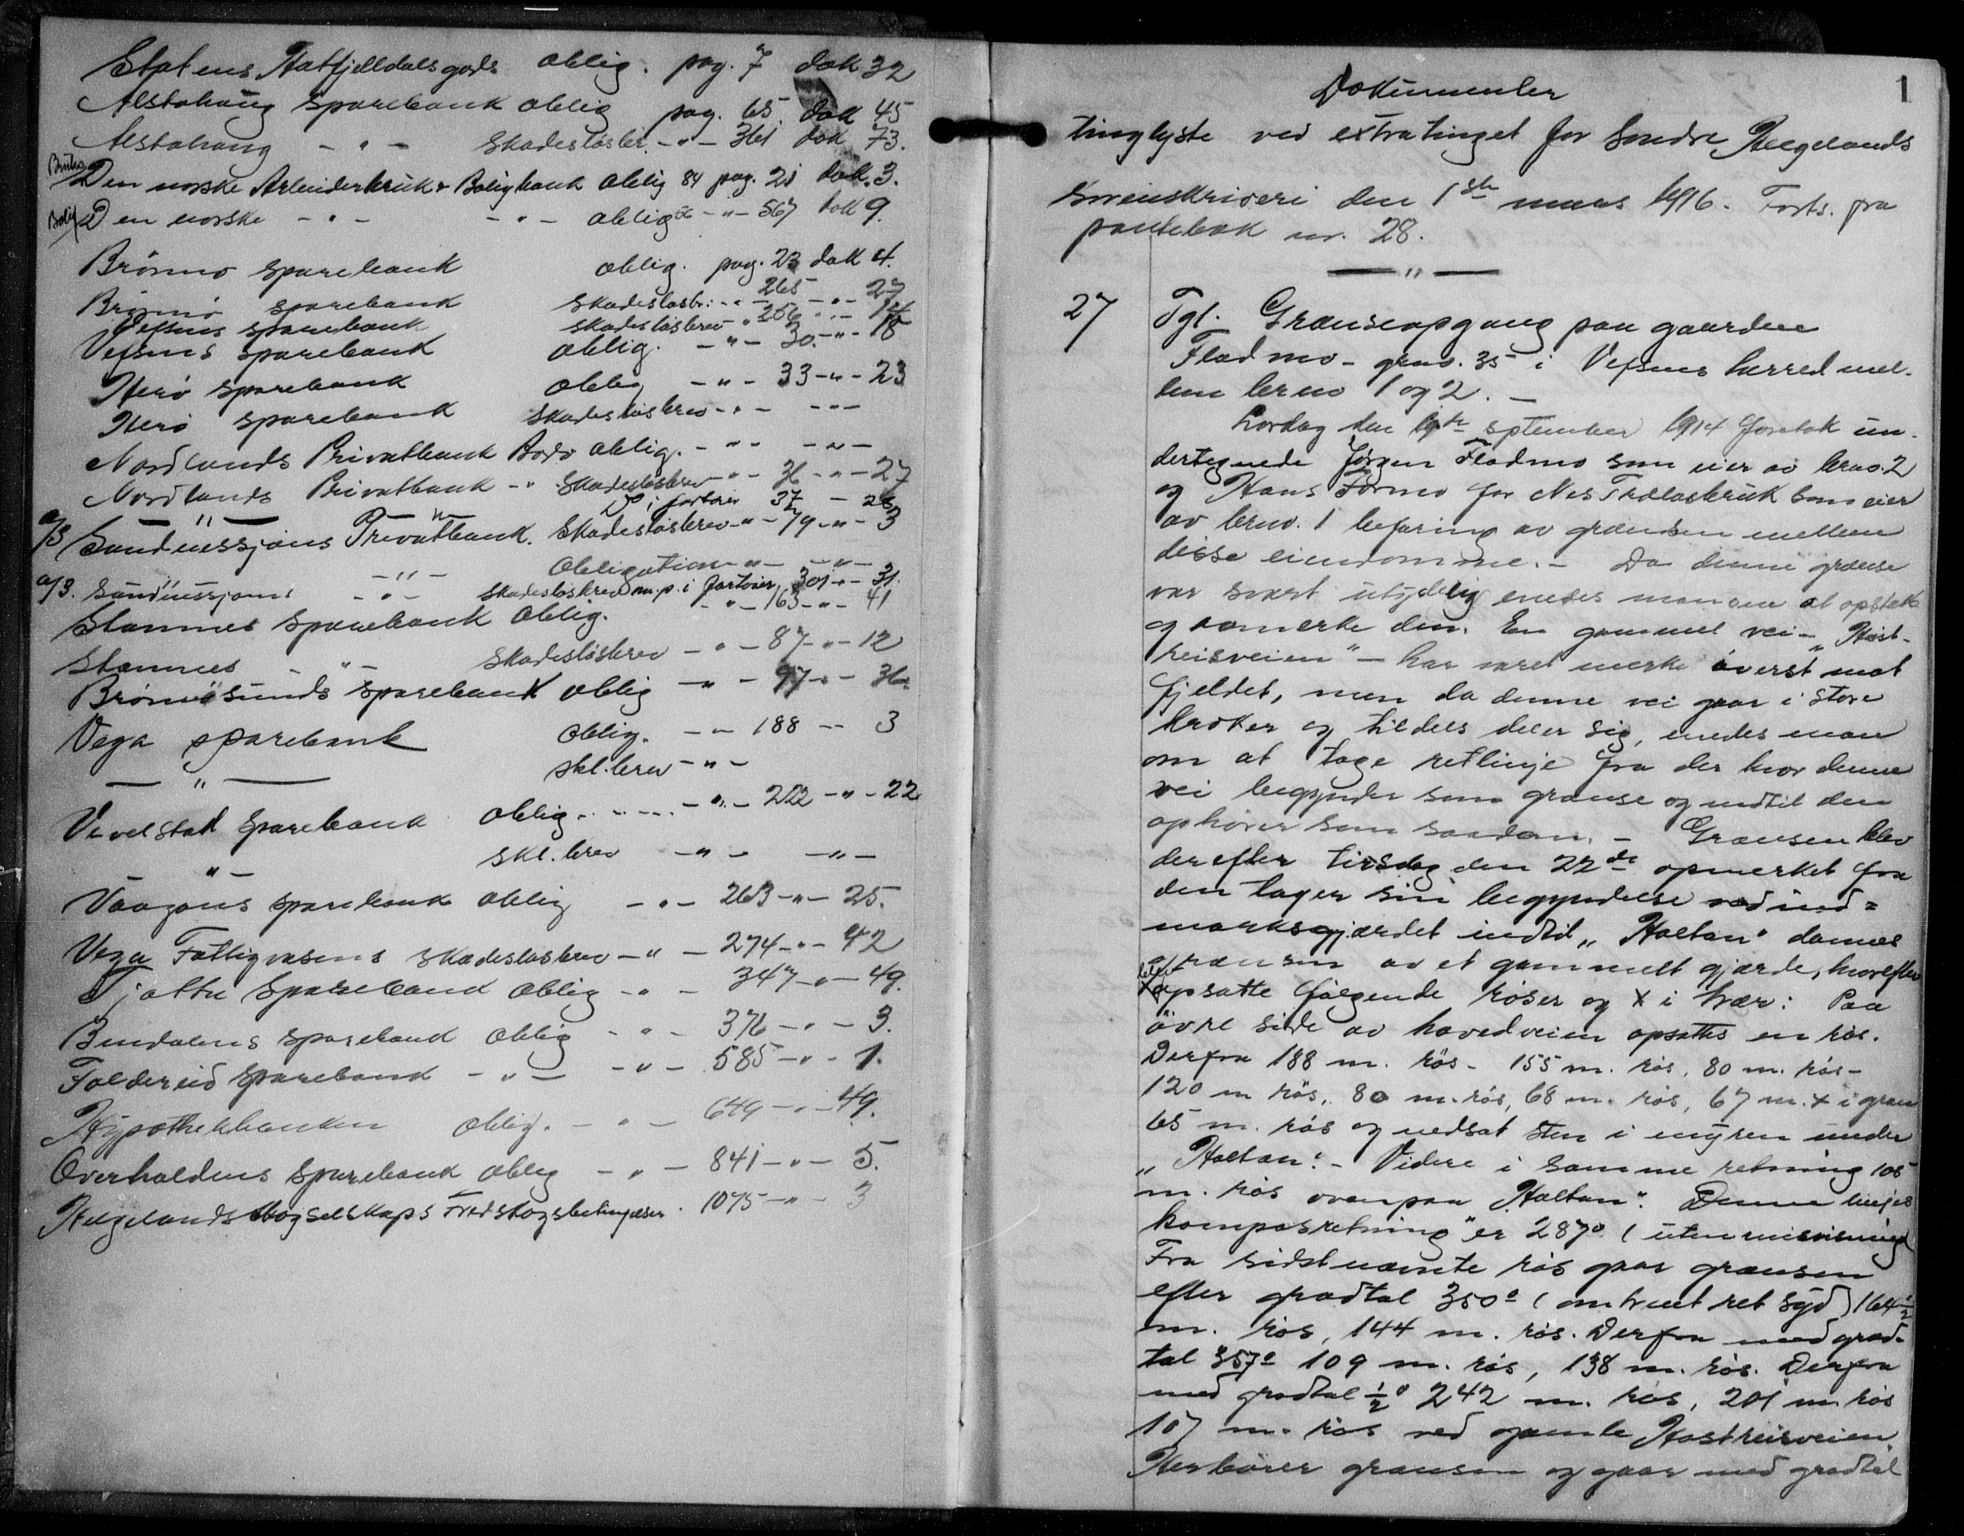 Statens Hatfjelldalsgods oblig. pag. 7 dok 32
Alstahaug sparebank oblig pag. 65 dok 45
Alstahaug - " - skadesløsbr. - " - 361 dok 73.
Bruks Den norske Arbeiderbruk & Boligbank oblig 84 pag. 21 dok. 3.
Bolig Den norske - " - - " - oblig - " - 567 dok 9.
Brønnø sparebank oblig. pag. 23 dok 4.
Brønnø sparebank skadesløsbr. - " 265 - " - 27
Vefsns sparebank skadesløsbrev - " 256 - " - 14
Vefsns sparebank oblig. - " - 30 - " - 18
Herø sparebank oblig - " - 33 - " - 23
Herø sparebank skadesløsbrev - " - - " -
Nordlands Privatbank Bodø oblig. - " - - " -
Nordlands Privatbank - " skadesløsbrev - " - 36 - " - 27
- " - " Do i fartøier 37 - 26
a/s Sandnessjøens Privatbank. Skadesløsbrev - " - 79 - " - 3
- " - Obligation - " - - " -
a/s. Sandnessjøens - " - skadesløsbrev m. p. i fartøier 301 - " - 31.
Stamnes sparebank oblig. - " - 163 - " - 41
Stamnes - " - skadesløsbrev - " - 87 - " - 12
Brønnøsunds sparebank oblig - " - 97 - " - 36.
Vega sparebank oblig. - " - 188 - " - 3
- " - skl.brev - " -
Vevelstad sparebank oblig. - " - 222 - " - 22
" - skl. brev - " - - " -
Vaagans sparebank oblig - " - 263 - " - 25.
Vega Fattigvæsens skadesløsbrev - " - 274 - " - 42
Tjøtta sparebank oblig - " - 347 - " - 49.
Bindalens sparebank oblig - " - 376 - " - 3.
Foldereid sparebank - " - - " - 585 - " - 1.
Hypothekbanken oblig. - " - 649 - " - 49.
Overhaldens sparebank oblig - " - 841 - " - 5.
Helgelands Skogselskaps Fredskogsbetingelser. 1075 - " - 3
1
Dokumenter
tinglyste ved extratinget for Søndre Helgelands
sorenskriveri den 1ste mars 1916. Forts. fra
pantebok nr. 28.
- " -
27 Tgl. Grænseopgang paa gaarden
Fladmo - gno. 35 i Vefsns herred mel-
lem brno 1 og 2. -
Lørdag den 19de september 1914 foretok un-
dertegnede Jørgen Fladmo som eier av brno. 2
og Hans Formo for Nes Trælastbruk som eier
av brno. 1 befaring av grænsen mellem
disse eiendomme. - Da denne grænse
var svært utydelig enedes man om at opstake
og avmerke den. En gammel vei - "Høst-
reisveien" - har været merke øverst mot
fjeldet, men da denne vei gaar i store
kroker og tildels deler sig, enedes man
om at tage retlinje fra der hvor denne
vei begynder som grænse og indtil den
ophører som saadan. - Grænsen blev
derefter tirsdag den 22de opmerket fra
den tager sin begyndelse ved ind-
marksgjærdet indtil "Holtan" dannes
grænsen av et gammelt gjærde, hvorefter
blev opsatte følgende røser og X i trær: Paa
øvre side av hovedveien opsattes en røs.
Derfra 188 m. røs - 155 m. røs, 80 m. røs -
120 m røs, 80 m. røs, 68 m. røs, 67 m. X i gran
65 m. røs og nedsat sten i myren under
"Holtan". - Videre i samme retning 105
m. røs ovenpaa "Holtan". Denne linjes
kompasretning er 287° (uten misvisning)
Fra sidstnævnte røs gaar grænsen
efter gradtal 350° (omtrent ret syd) 164 1/2
m. røs, 144 m. røs. Derfra med grad-
tal 357° 109 m. røs, 138 m. røs. Derfra
med gradtal 1/2° 242 m. røs, 201 m. røs
107 m. røs ved gamle Høstreisveien
Her bøier grænsen og gaar med gradtal